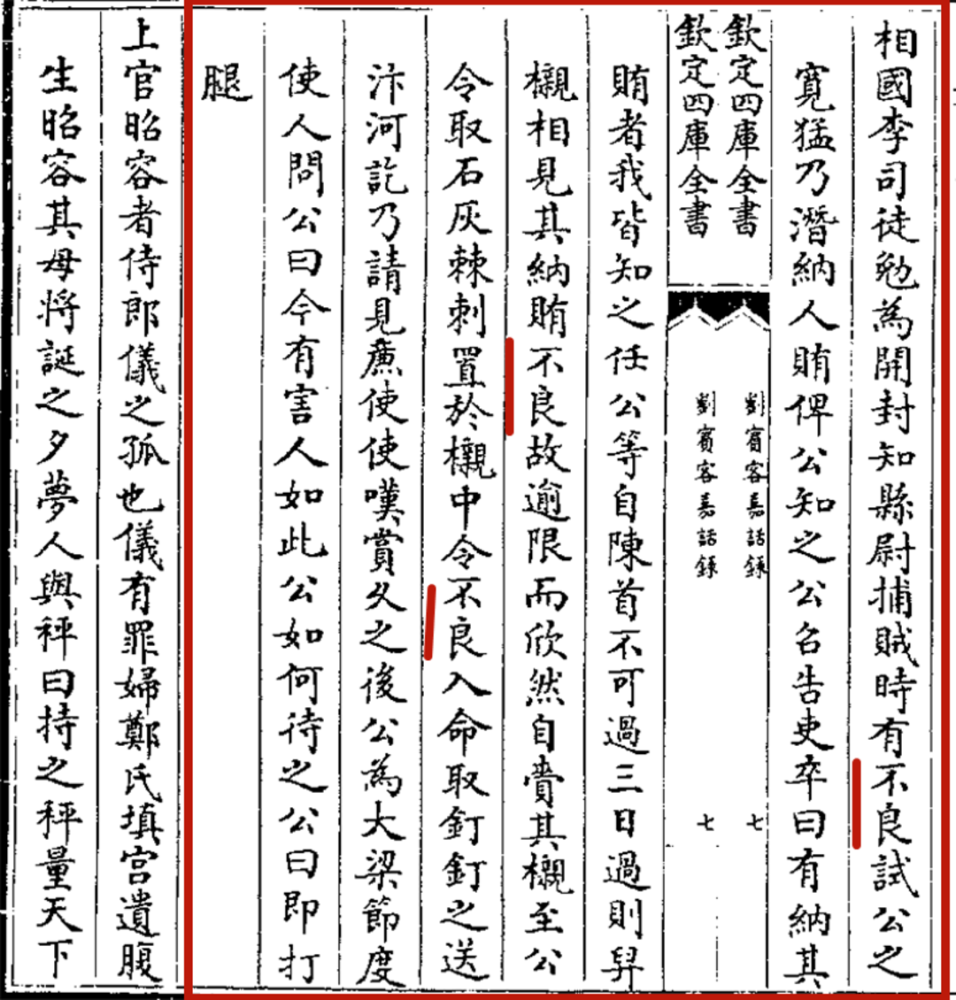 相國李司徒勉為開封知縣尉捕賊時有不良試公之
寛猛乃潛納人賄俾公知之公召告吏卒曰有納其
欽定四庫全書
劉賓客嘉話錄
七
欽定四庫全書
劉賓客嘉話錄
七
賄者我皆知之任公等自陳首不可過三日過則舁
櫬相見其納賄不良故逾限而欣然自賫其櫬至公
令取石灰棘刺置於櫬中令不良入命取釘釘之送
汴河訖乃請見㢘使使嘆賞乆之後公為大梁節度
使人問公曰今有害人如此公如何待之公曰即打
腿
上官昭容者侍郎儀之孤也儀有罪婦鄭氏填宫遺腹
生昭容其母將誕之夕夢人與秤曰持之秤量天下